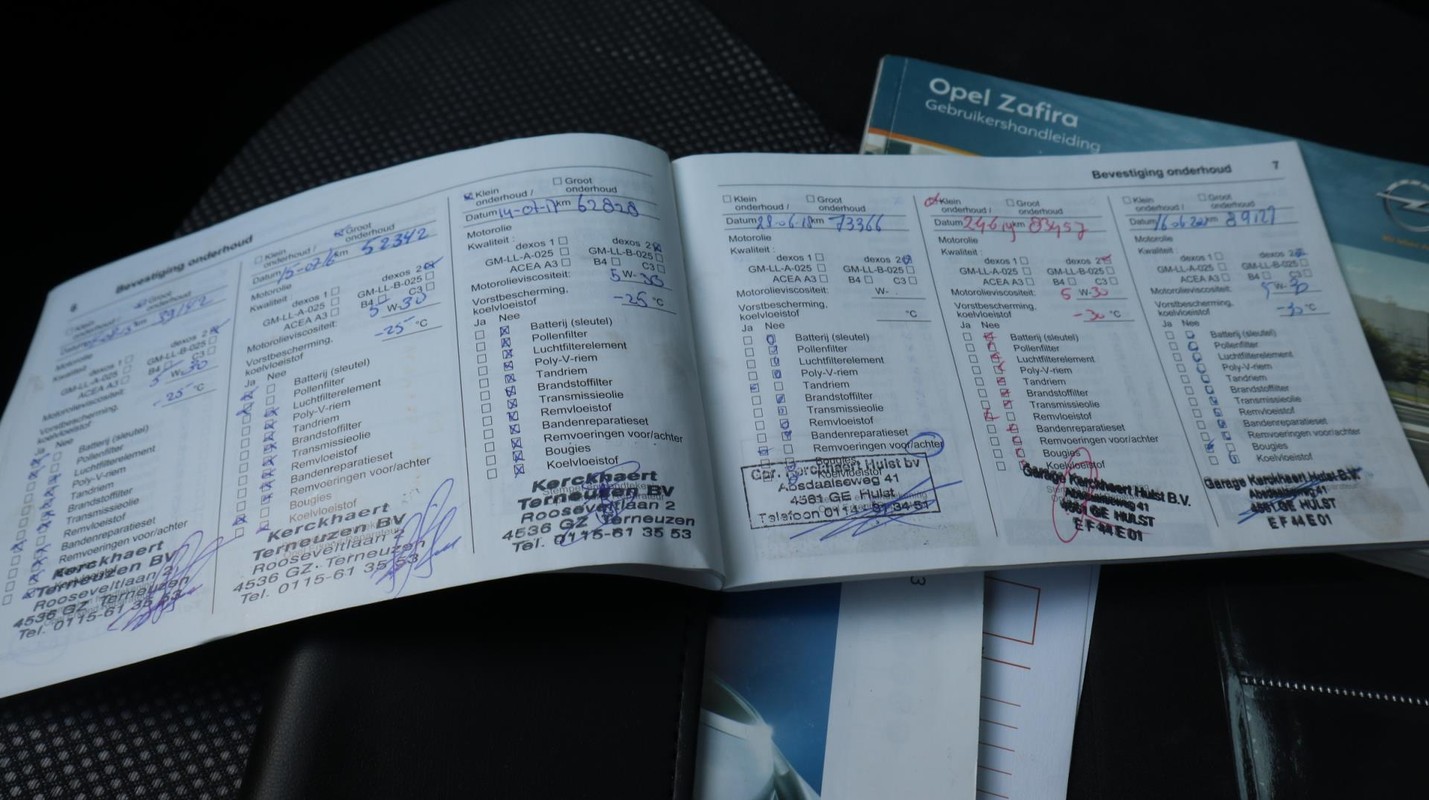 Opel Zafira
Gebruikershandleiding
6
Bevestiging onderhoud
Klein
onderhoud /
Groot
onderhoud
Datum
km
Motorolie
Kwaliteit
dexos 1
dexos 2
GM-LL-A-025
GM-LL-B-025
ACEA A3
B4
C3
Motorolieviscositeit:
5 W-30
Vorstbescherming,
koelvloeistof
-25 °C
Ja Nee
Batterij (sleutel)
Pollenfilter
Luchtfilterelement
Poly-V-riem
Tandriem
Brandstoffilter
Transmissieolie
Remvloeistof
Bandenreparatieset
Remvoeringen voor/achter
Kerckhaert
Terneuzen BV
Rooseveltlaan 2
4536 GZ Terneuzen
Tel. 0115-61 35 53
Klein
onderhoud /
Groot
onderhoud
Datum
km 52342
Motorolie
Kwaliteit
dexos 1
dexos 2
GM-LL-A-025
GM-LL-B-025
ACEA A3
B4
C3
Motorolieviscositeit:
5 W-30
Vorstbescherming,
koelvloeistof
-25 °C
Ja Nee
Batterij (sleutel)
Pollenfilter
Luchtfilterelement
Poly-V-riem
Tandriem
Brandstoffilter
Transmissieolie
Remvloeistof
Bandenreparatieset
Remvoeringen voor/achter
Bougies
Koelvloeistof
Kerckhaert
Terneuzen BV
Rooseveltlaan 2
4536 GZ Terneuzen
Tel. 0115-61 35 53
Klein
onderhoud /
Groot
onderhoud
Datum 14-07-17 km 62828
Motorolie
Kwaliteit :
dexos 1
dexos 2
GM-LL-A-025
GM-LL-B-025
ACEA A3
B4
C3
Motorolieviscositeit:
5 W-30
Vorstbescherming,
koelvloeistof
-25 °C
Ja Nee
Batterij (sleutel)
Pollenfilter
Luchtfilterelement
Poly-V-riem
Tandriem
Brandstoffilter
Transmissieolie
Remvloeistof
Bandenreparatieset
Remvoeringen voor/achter
Bougies
Koelvloeistof
Kerckhaert
Terneuzen BV
Rooseveltlaan 2
4536 GZ Terneuzen
Tel. 0115-61 35 53
Bevestiging onderhoud
7
Klein
onderhoud /
Groot
onderhoud
Datum 28-06-18 km 73366
Motorolie
Kwaliteit :
dexos 1
dexos 2
GM-LL-A-025
GM-LL-B-025
ACEA A3
B4
C3
Motorolieviscositeit:
W-
Vorstbescherming,
koelvloeistof
°C
Ja Nee
Batterij (sleutel)
Pollenfilter
Luchtfilterelement
Poly-V-riem
Tandriem
Brandstoffilter
Transmissieolie
Remvloeistof
Bandenreparatieset
Remvoeringen voor/achter
Bougies
Koelvloeistof
Kerckhaert Hulst bv
Absdaalseweg 41
4561 GE Hulst
Telefoon 0114 - 31 34 51
Klein
onderhoud /
Groot
onderhoud
Datum
km 83457
Motorolie
Kwaliteit :
dexos 1
dexos 2
GM-LL-A-025
GM-LL-B-025
ACEA A3
B4
C3
Motorolieviscositeit:
5 W-30
Vorstbescherming,
koelvloeistof
-30 °C
Ja Nee
Batterij (sleutel)
Pollenfilter
Luchtfilterelement
Poly-V-riem
Tandriem
Brandstoffilter
Transmissieolie
Remvloeistof
Bandenreparatieset
Remvoeringen voor/achter
Bougies
Koelvloeistof
Garage Kerckhaert Hulst B.V.
Absdaalseweg 41
4561 GE HULST
EF 44 E 01
Klein
onderhoud /
Groot
onderhoud
Datum
km 89127
Motorolie
Kwaliteit :
dexos 1
dexos 2
GM-LL-A-025
GM-LL-B-025
ACEA A3
B4
C3
Motorolieviscositeit:
5 W-30
Vorstbescherming,
koelvloeistof
-30 °C
Ja Nee
Batterij (sleutel)
Pollenfilter
Luchtfilterelement
Poly-V-riem
Tandriem
Brandstoffilter
Transmissieolie
Remvloeistof
Bandenreparatieset
Remvoeringen voor/achter
Bougies
Koelvloeistof
Garage Kerckhaert Hulst B.V.
Absdaalseweg 41
4561 GE HULST
EF 44 E 01